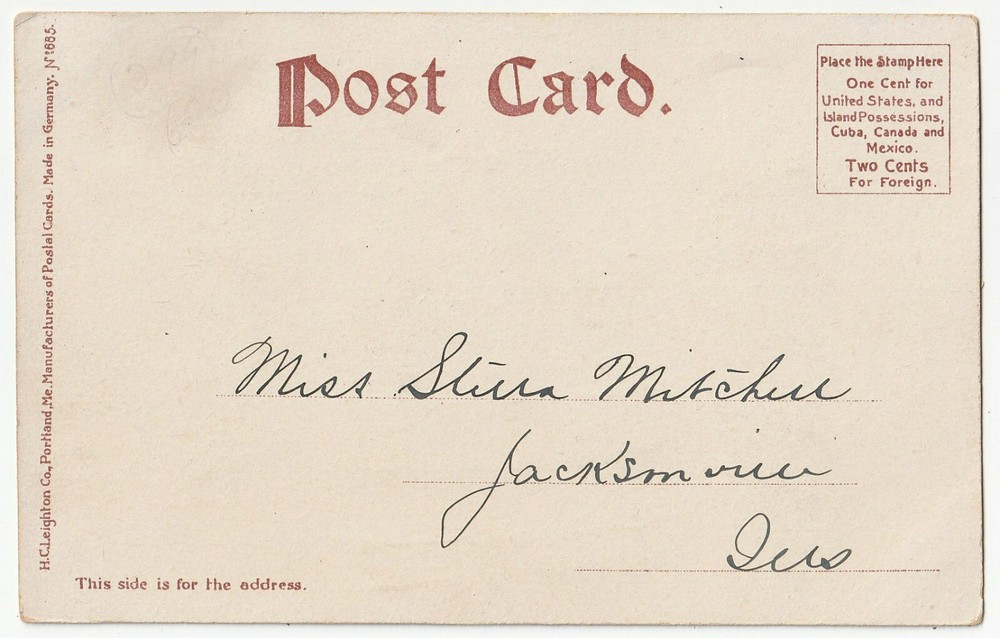 Post Card.
Place the Stamp Here
One Cent for
United States, and
Island Possessions,
Cuba, Canada and
Mexico.
Two Cents
For Foreign.
H.C. Leighton Co., Portland, Me. Manufacturers of Postal Cards. Made in Germany. No 685.
Miss Stella Mitchell
Jacksonville
Ills
This side is for the address.